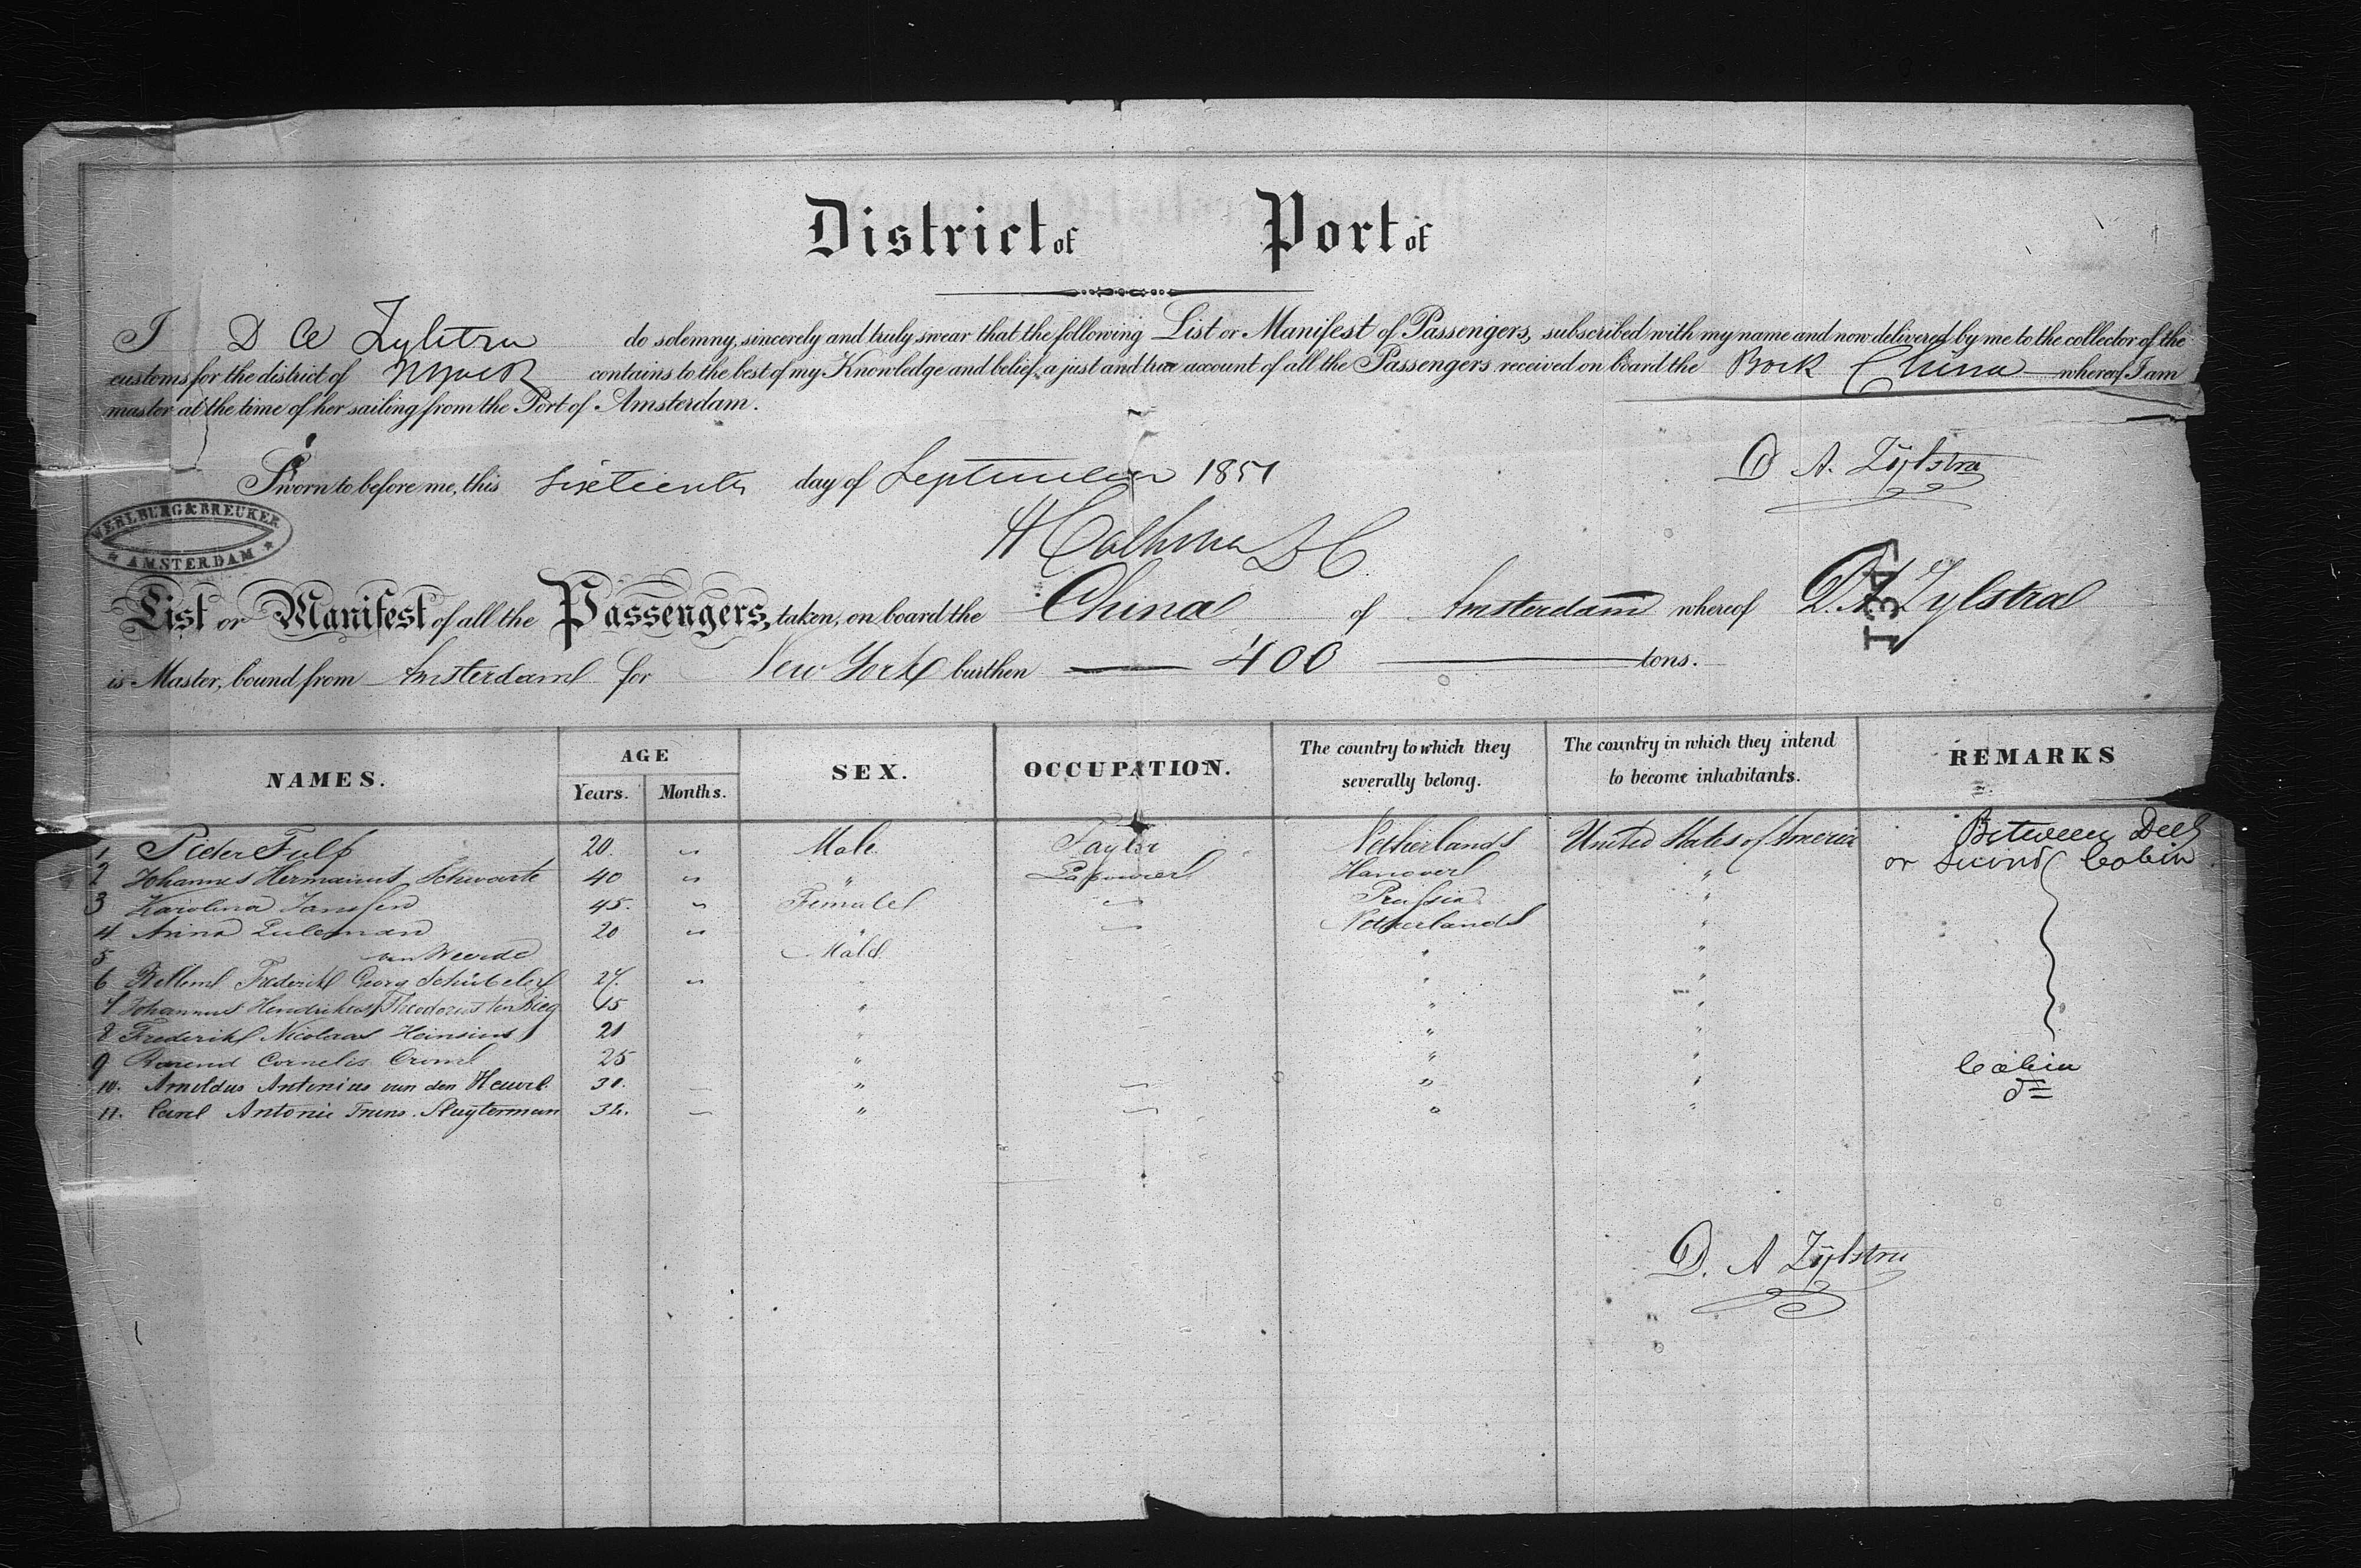 District of Port of
I D A Zylstra do solemny, sincerely and truly swear that the following List or Manifest of Passengers, subscribed with my name and now delivered by me to the collector of the
customs for the district of NYork contains to the best of my Knowledge and belief, a just and true account of all the Passengers received on board the Bark China whereof I am
master at the time of her sailing from the Port of Amsterdam.
Sworn to before me, this sixteenth day of September 1851
D A. Zijlstra
WERLBURG & BREUKER
AMSTERDAM
H Calhoun D C
List or Manifest of all the Passengers, taken, on board the China of Amsterdam whereof D. A. Zylstra
is Master, bound from Amsterdam for New York burthen 400 tons.
NAMES. AGE SEX. OCCUPATION. The country to which they severally belong. The country in which they intend to become inhabitants. REMARKS
Years. Months.
1 Pieter Fulp 20. " Male Taylor Netherlands United States of America Between Deck
2 Johannes Hermannus Schwarte 40 " " Hanover " or second Cabin
3 Karolina Janssen 45. " Female " Prussia "
4 Anna 20 " " " Netherlands "
5 van Weerde Male " "
6 Willem Frederik Georg 27. " " " "
7 Johannes Hendrikus Theodorus ten 45 " " "
8 Frederik Nicolaas Heinsius 21 " " "
9 Barend Cornelis 25 " " "
10. Arnoldus Antonius van den Heuvel 31. " " " " " Cabin
11. Carel Antonie Frans. Sluyterman 34. " " " " " do
D. A Zijlstra